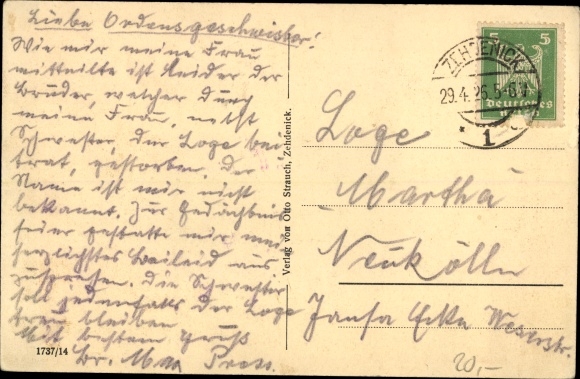 Liebe Ordensgeschwister!
Wie mir meine Frau
mitteilte ist leider der
Bruder, welcher durch
meine Frau, nebst
Schwester, der Loge bei
trat, gestorben. Der
Name ist mir nicht
bekannt. Zur Gedächtnis
feier gestatte mir mein
herzlichstes Beileid aus
zusprechen. Die Schwester
soll jedenfalls der Loge
treu bleiben
Mit bestem Gruß
Br. Max
1737/14
Verlag von Otto Strauch, Zehdenick.
5 5
Deutsches
Reich
ZEHDENICK
29.4.26.5-6
* 1
Loge
Martha
Neukölln
Jansa Ecke Weserstr.
20,-